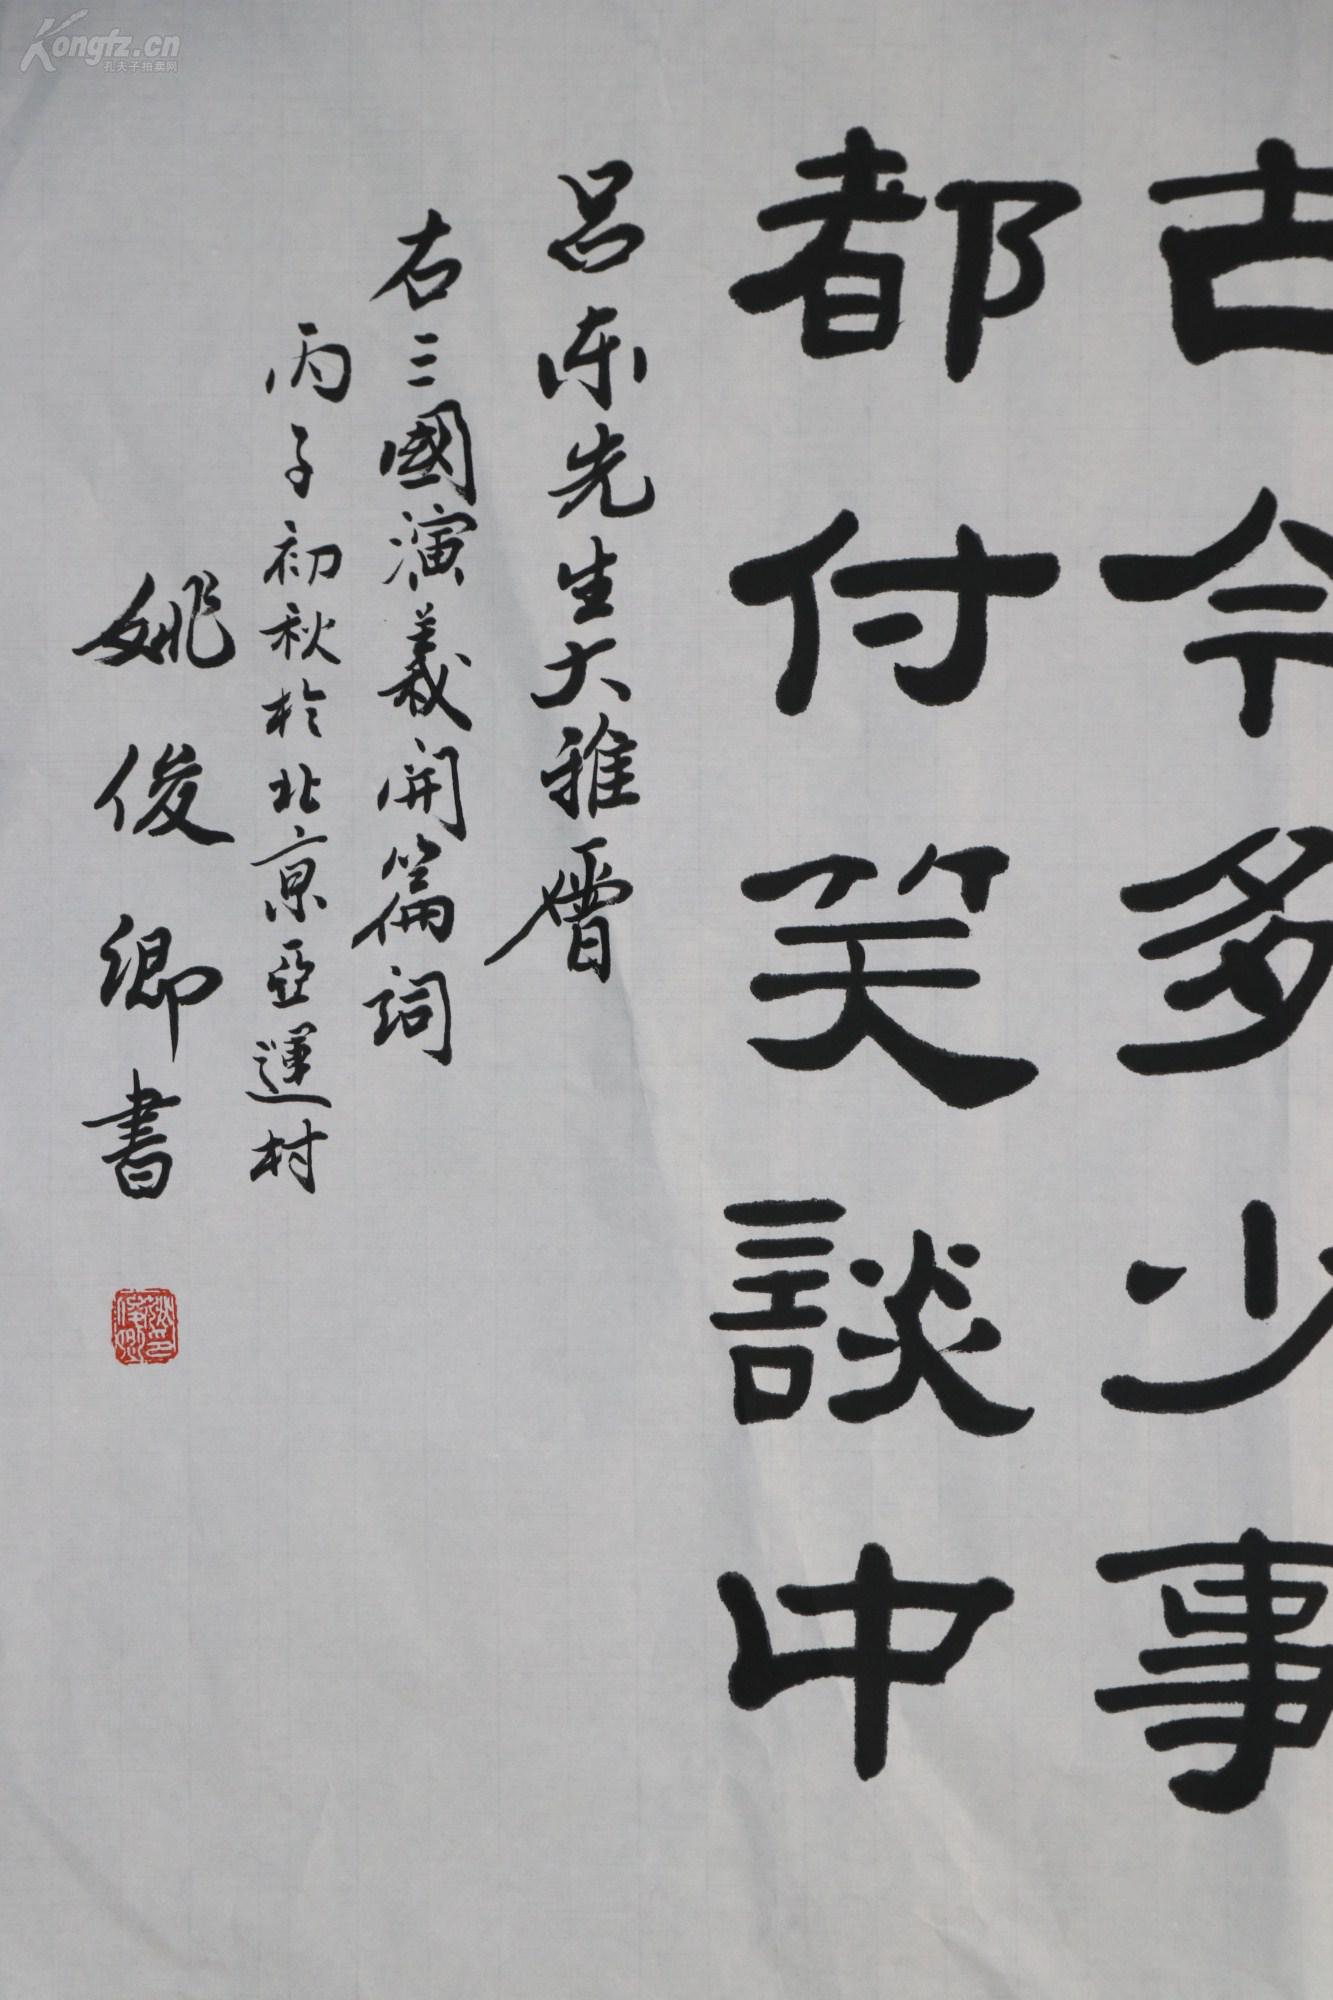 古今多少事
都付笑談中
呂東先生大雅晉
右三國演義開篇詞
丙子初秋於北京亞運村
姚俊卿書
Kongfz.cn
孔夫子拍卖网